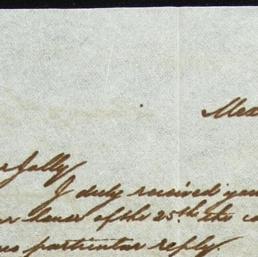 Mex
Sally
I duly received you
of the 25th the co
particular reply.